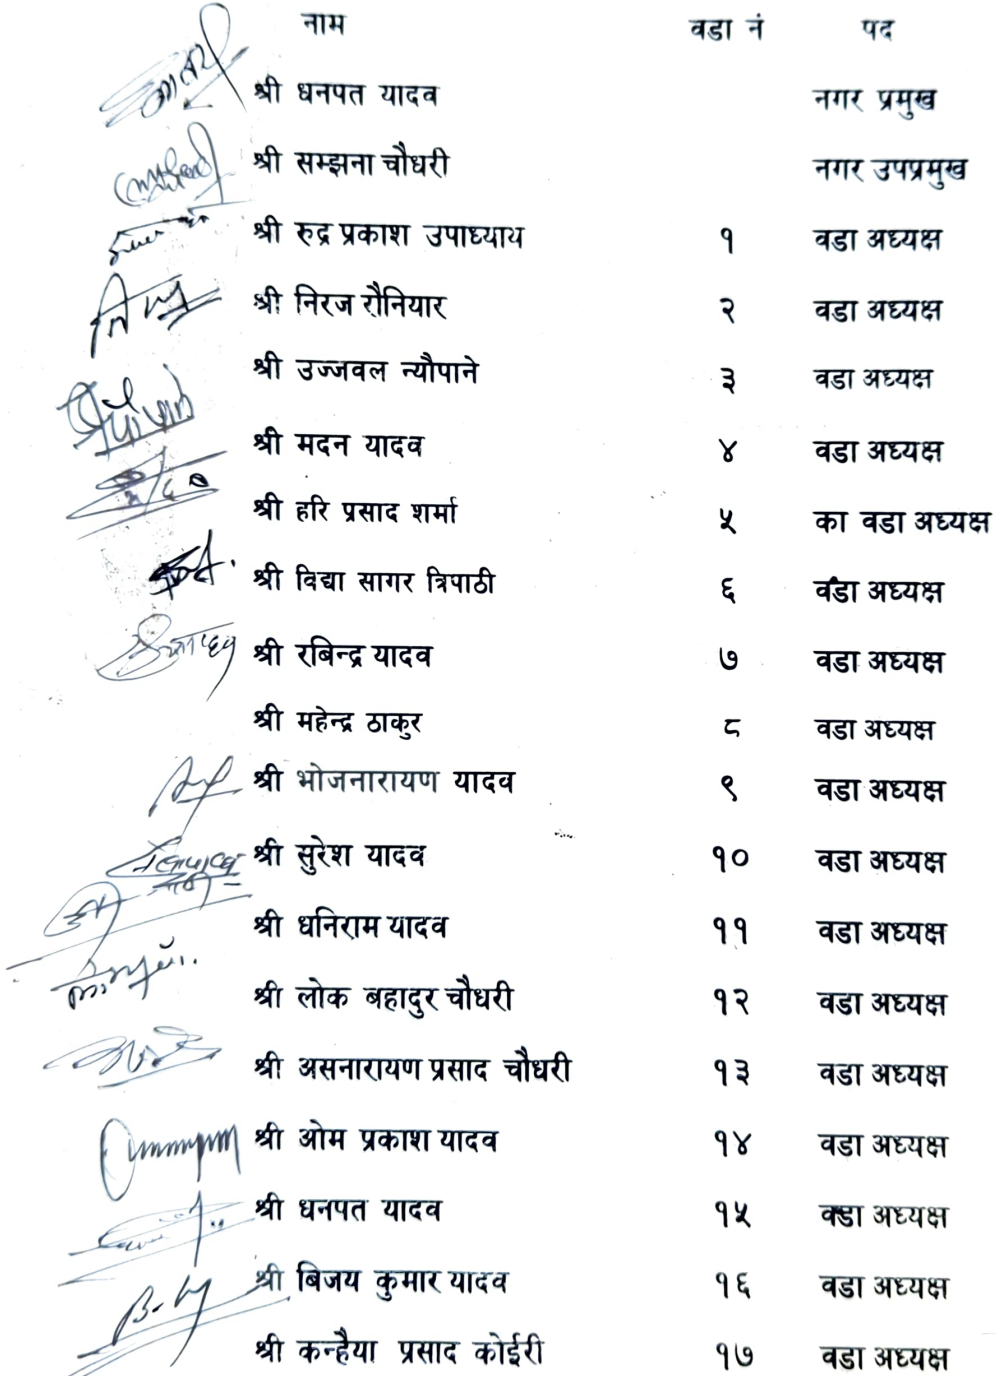 नाम वडा नं पद
श्री धनपत यादव नगर प्रमुख
श्री सम्झना चौधरी नगर उपप्रमुख
श्री रुद्र प्रकाश उपाध्याय १ वडा अध्यक्ष
श्री निरज रौनियार २ वडा अध्यक्ष
श्री उज्जवल न्यौपाने ३ वडा अध्यक्ष
श्री मदन यादव ४ वडा अध्यक्ष
श्री हरि प्रसाद शर्मा ५ का वडा अध्यक्ष
श्री विद्या सागर त्रिपाठी ६ वडा अध्यक्ष
श्री रबिन्द्र यादव ७ वडा अध्यक्ष
श्री महेन्द्र ठाकुर ८ वडा अध्यक्ष
श्री भोजनारायण यादव ९ वडा अध्यक्ष
श्री सुरेश यादव १० वडा अध्यक्ष
श्री धनिराम यादव ११ वडा अध्यक्ष
श्री लोक बहादुर चौधरी १२ वडा अध्यक्ष
श्री असनारायण प्रसाद चौधरी १३ वडा अध्यक्ष
श्री ओम प्रकाश यादव १४ वडा अध्यक्ष
श्री धनपत यादव १५ वडा अध्यक्ष
श्री बिजय कुमार यादव १६ वडा अध्यक्ष
श्री कन्हैया प्रसाद कोईरी १७ वडा अध्यक्ष